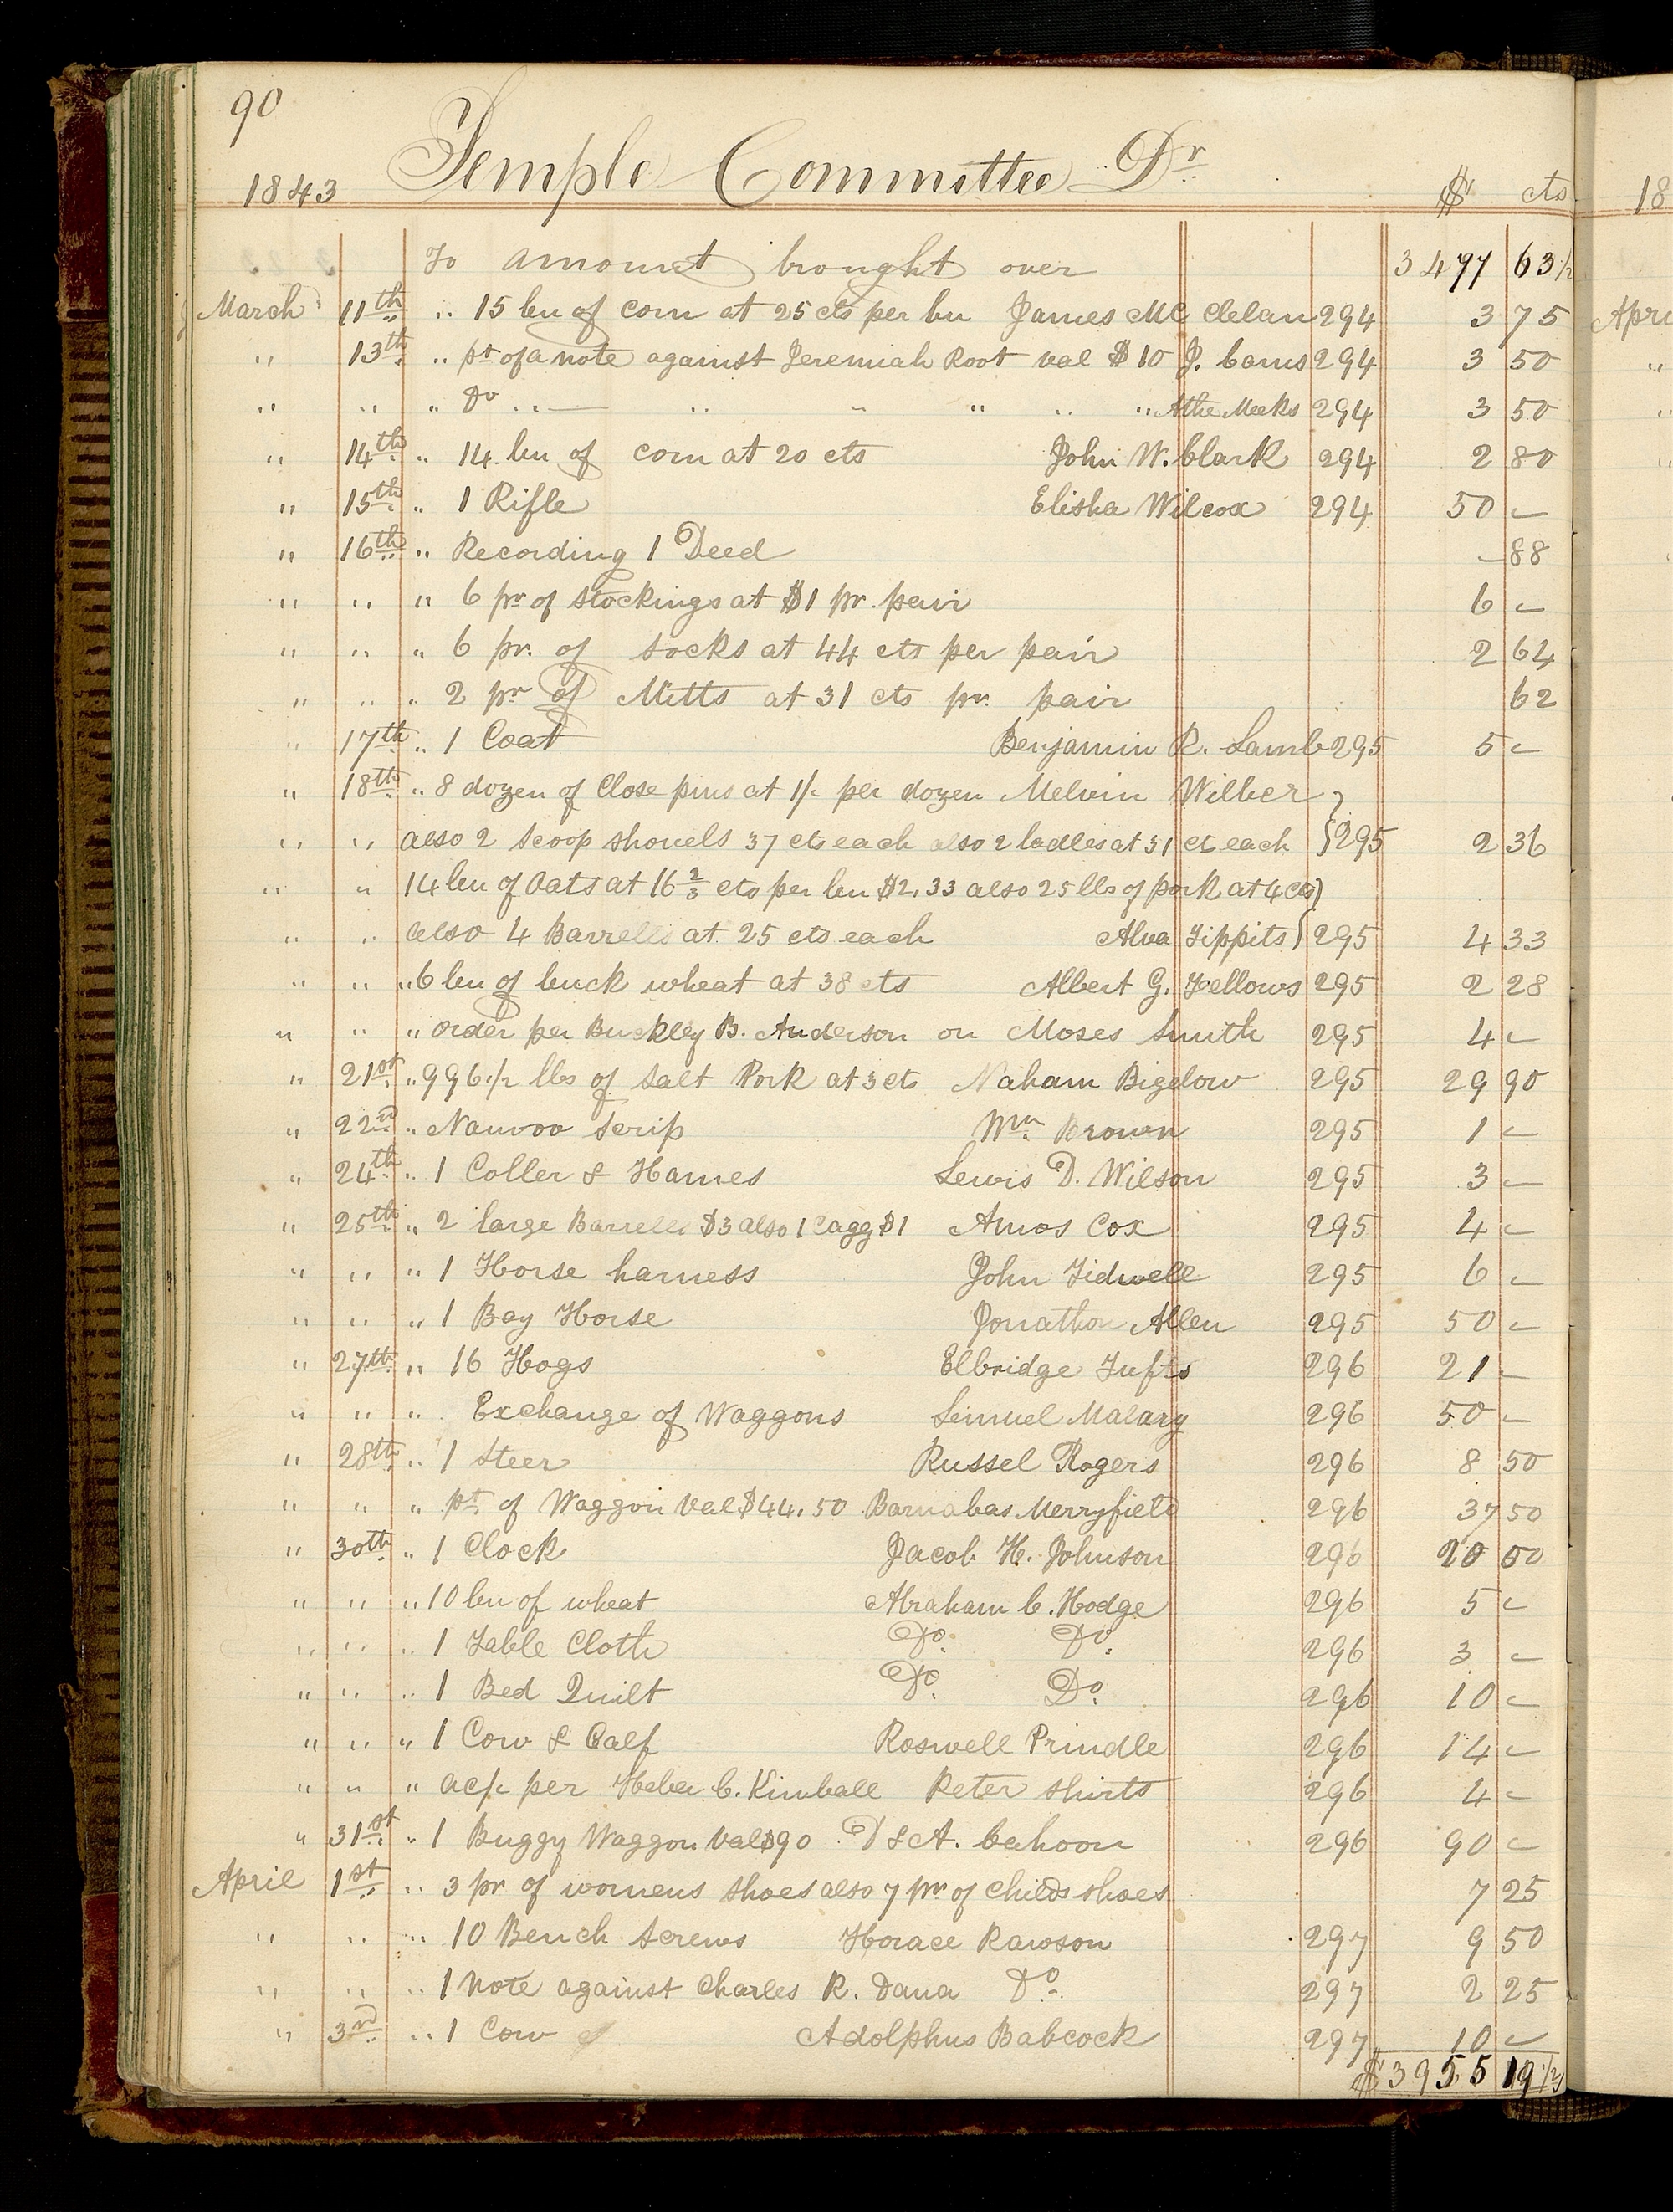 90
1843 Temple Committee Dr $ cts 18
To amount brought over 3477 63 1/2
March 11th " 15 bu of corn at 25 cts per bu James Mc Clelan 294 3 75 Apri
" 13th " pt of a note against Jeremiah Root val $10 J. Carns 294 3 50 "
" " " Do " — " " " " " Athe Meeks 294 3 50 "
" 14th " 14 bu of corn at 20 cts John W. Clark 294 2 80 "
" 15th " 1 Rifle Elisha Wilcox 294 50 –
" 16th " Recording 1 Deed – 88
" " " 6 pr of stockings at $1 pr. pair 6 –
" " " 6 pr. of socks at 44 cts per pair 2 64
" " " 2 pr of Mitts at 31 cts pr. pair 62
" 17th " 1 Coat Benjamin R. Lamb 295 5 –
" 18th " 8 dozen of Close pins at 1/- per dozen Melvin Wilber }
" " also 2 scoop shovels 37 cts each also 2 ladles at 31 ct each } 295 2 36
" " 14 bu of Oats at 16 2/3 cts per bu $2.33 also 25 lbs of pork at 4 cts }
" " also 4 Barrells at 25 cts each Alva Tippits } 295 4 33
" " " 6 bu of buck wheat at 38 cts Albert G. Fellows 295 2 28
" " " order per Buckley B. Anderson on Moses Smith 295 4 –
" 21st " 996 1/2 lbs of Salt Pork at 3 cts Naham Bigelow 295 29 90
" 22nd " Nauvoo Scrip Wm Brown 295 1 –
" 24th " 1 Coller & Hames Lewis D. Wilson 295 3 –
" 25th " 2 large Barrells $3 also 1 Cagg $1 Amos Cox 295 4 –
" " " 1 Horse harness John Tidwell 295 6 –
" " " 1 Bay Horse Jonathan Allen 295 50 –
" 27th " 16 Hogs Elbridge Tufts 296 21 –
" " " Exchange of Waggons Lemuel Malary 296 50 –
" 28th " 1 Steer Russel Rogers 296 8 50
" " " pt of Waggon Val $44.50 Barnabas Merryfield 296 37 50
" 30th " 1 Clock Jacob H. Johnson 296 20 00
" " " 10 bu of wheat Abraham C. Hodge 296 5 –
" " " 1 Table Cloth Do. Do. 296 3 –
" " " 1 Bed Quilt Do. Do. 296 10 –
" " " 1 Cow & Calf Roswell Prindle 296 14 –
" " " ac/- per Heber C. Kimball Peter Shirts 296 4 –
" 31st " 1 Buggy Waggon Val $90 D & A. Cahoon 296 90 –
April 1st " 3 pr of womens shoes also 7 pr of childs shoes 7 25
" " " 10 Bench Screws Horace Rawson 297 9 50
" " " 1 Note against Charles R. Dana Do. 297 2 25
" 3rd " 1 Cow Adolphus Babcock 297 10 –
$3955 19 1/2